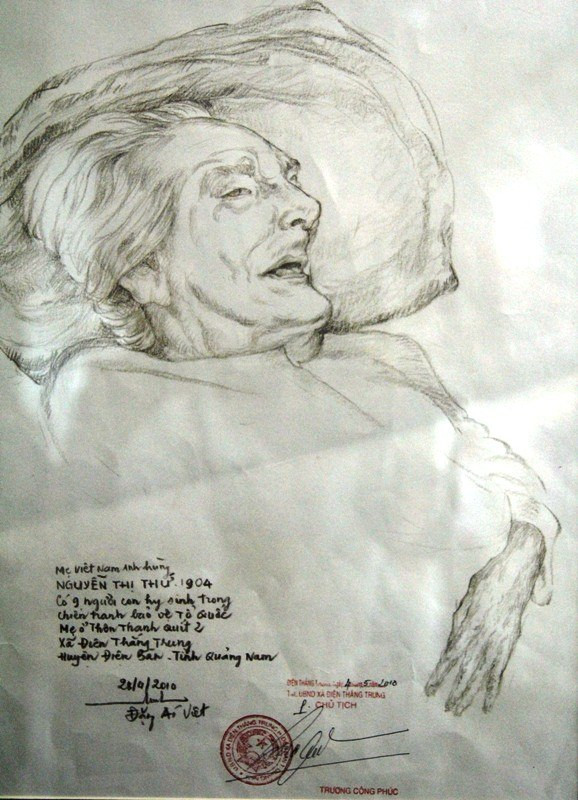 Mẹ Việt Nam Anh hùng
NGUYỄN THỊ THỨ. 1904
Có 9 người con hy sinh trong
chiến tranh bảo vệ Tổ Quốc
Mẹ ở Thôn Thanh Quít 2
Xã Điện Thắng Trung
Huyện Điện Bàn - Tỉnh Quảng Nam
28/4/2010
Đặng Ái Việt
ĐIỆN THẮNG Trung, ngày 4 tháng 5 năm 2010
T.M. UBND XÃ ĐIỆN THẮNG TRUNG
CHỦ TỊCH
TRƯƠNG CÔNG PHÚC